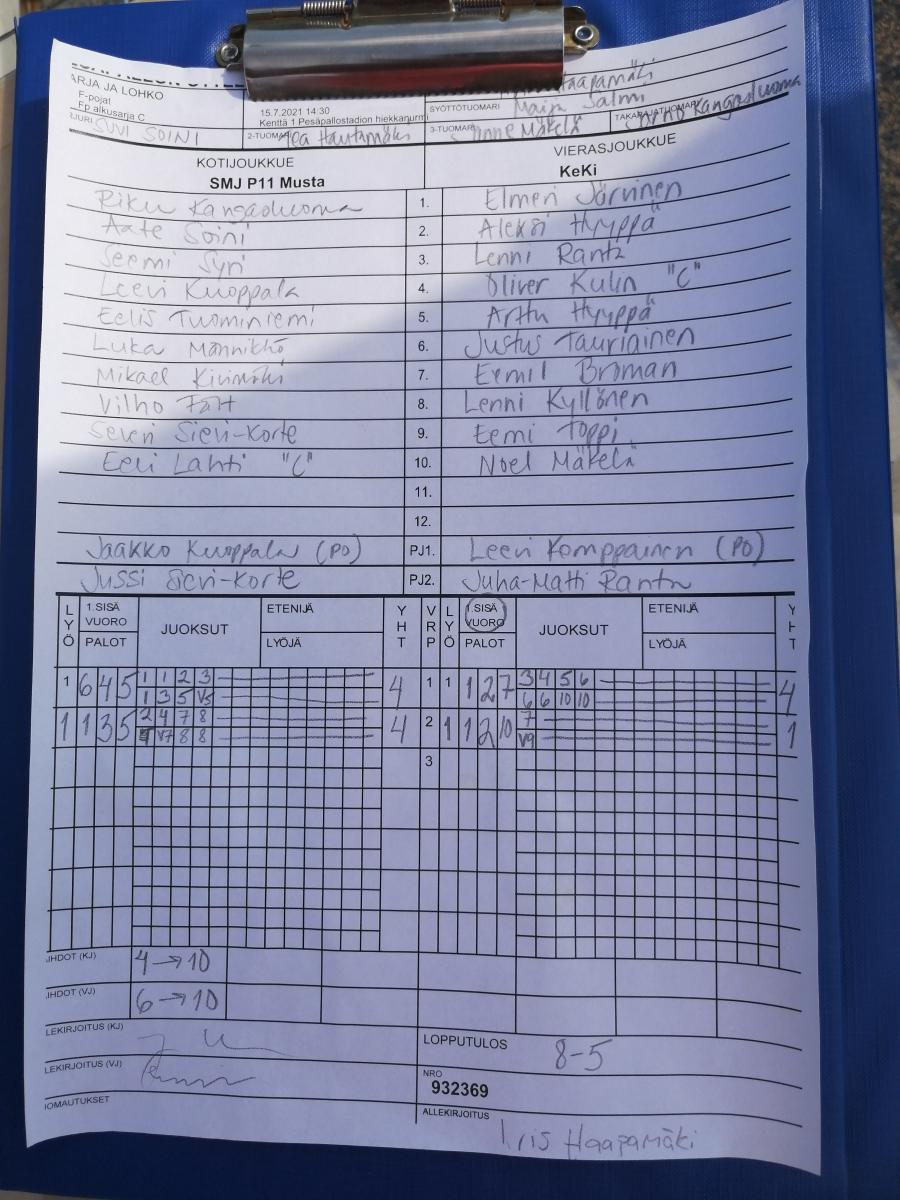 ARJA JA LOHKO
F-pojat
Fp alkusarja C
15.7.2021 14:30
Kenttä 1 Pesäpallostadion hiekkanurmi
SYÖTTÖTUOMARI Maija Salmi
TAKARAJATUOMARI Kangasluoma
SUVI SOINI
2-TUOMARI Tea Hautamäki
3-TUOMARI Mäkelä
KOTIJOUKKUE VIERASJOUKKUE
SMJ P11 Musta KeKi
Riku Kangasluoma 1. Elmeri Järvinen
Aate Soini 2. Aleksi Hyyppä
Seemi Syri 3. Lenni Ranta
Leevi Kuoppala 4. Oliver Kulin "C"
Eelis Tuominiemi 5. Arttu Hyyppä
Luka Männikkö 6. Justus Tauriainen
Mikael Kivimäki 7. Eemil Broman
Vilho Fält 8. Lenni Kyllönen
Severi Sievi-Korte 9. Eemi Toppi
Eeli Lahti "C" 10. Noel Mäkelä
11.
12.
Jaakko Kuoppala (PO) PJ1. Leevi Komppainen (PO)
Jussi Sievi-Korte PJ2. Juha-Matti Ranta
LYÖ 1.SISÄ VUORO PALOT JUOKSUT ETENIJÄ LYÖJÄ YHT VRP LYÖ 1.SISÄ VUORO PALOT JUOKSUT ETENIJÄ LYÖJÄ YHT
1 6 4 5 1 1 2 3 4 1 1 1 2 7 3 4 5 6 4
1 3 5 V5 6 6 10 10
1 1 3 5 2 4 7 8 4 2 1 1 2 10 7 1
V7 8 8 V9
3
IHDOT (KJ) 4 → 10
IHDOT (VJ) 6 → 10
LEKIRJOITUS (KJ)
LOPPUTULOS 8-5
LEKIRJOITUS (VJ)
NRO
932369
IOMAUTUKSET
ALLEKIRJOITUS
Iris Haapamäki